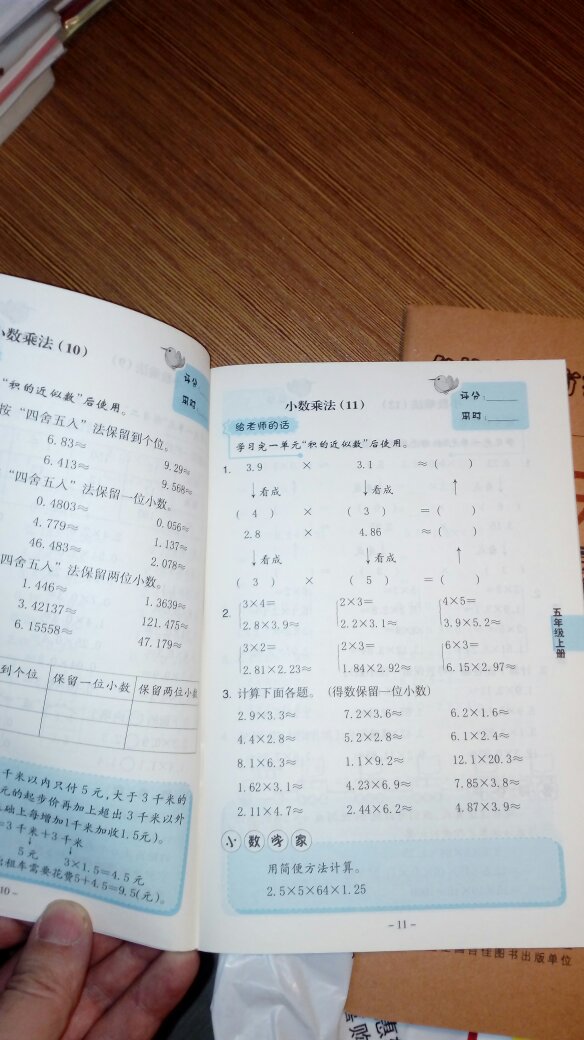 小数乘法（10）
评分：
用时：
“积的近似数”后使用。
按“四舍五入”法保留到个位。
6.83≈ 9.29≈
6.413≈ 9.568≈
“四舍五入”法保留一位小数。
0.4803≈ 0.056≈
4.779≈ 1.137≈
46.483≈ 2.078≈
四舍五入”法保留两位小数。
1.446≈ 1.3639≈
3.42137≈ 121.475≈
6.15558≈ 47.179≈
到个位 保留一位小数 保留两位小数
千米以内只付5元，大于3千米的
元的起步价再加上超出3千米以外
础上每增加1千米加收1.5元）。
=3千米+3千米
↓ ↓
5元 3×1.5=4.5元
出租车需要花费5+4.5=9.5(元)。
10-
小数乘法（11）
评分：
用时：
给老师的话
学习完一单元“积的近似数”后使用。
1. 3.9 × 3.1 ≈（ ）
↓看成 ↓看成 ↑
（ 4 ） × （ 3 ） =（ ）
2.8 × 4.86 ≈（ ）
↓看成 ↓看成 ↑
（ 3 ） × （ 5 ） =（ ）
2. 3×4= 2×3= 4×5=
2.8×3.9≈ 2.2×3.1≈ 3.9×5.2≈
3×2= 2×3= 6×3=
2.81×2.23≈ 1.84×2.92≈ 6.15×2.97≈
3. 计算下面各题。（得数保留一位小数）
2.9×3.3≈ 7.2×3.6≈ 6.2×1.6≈
4.4×2.8≈ 5.2×2.8≈ 6.1×2.4≈
8.1×6.3≈ 1.1×9.2≈ 12.1×20.3≈
1.62×3.1≈ 4.23×6.9≈ 7.85×3.8≈
2.11×4.7≈ 2.44×6.2≈ 4.87×3.9≈
小数学家
用简便方法计算。
2.5×5×64×1.25
-11-
五年级上册
佳图书出版单位
惠